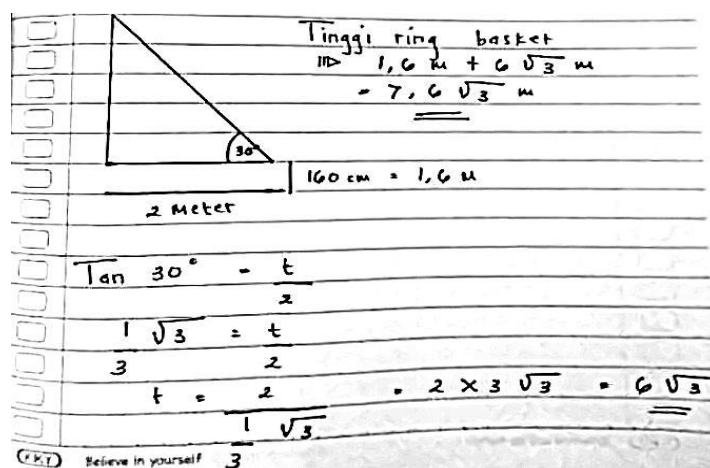 Tinggi ring basket
⇒ 1,6 m + 6 √3 m
= 7,6 √3 m
30°
160 cm = 1,6 m
2 Meter
Tan 30° = t/2
1/3 √3 = t/2
t = 2/(1/3 √3) = 2 × 3 √3 = 6 √3
KKY Believe in yourself